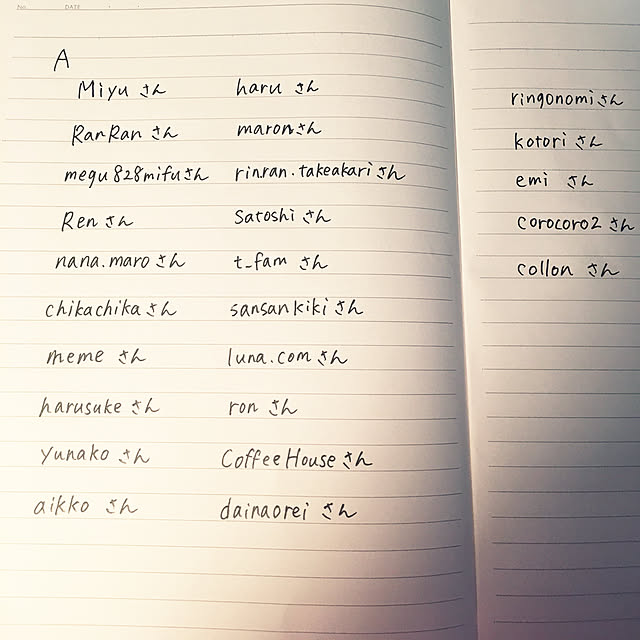 No.
DATE
A
Miyu さん
RanRan さん
megu828mifuさん
Ren さん
nana.maro さん
chikachika さん
meme さん
harusuke さん
yunako さん
aikko さん
haru さん
maronさん
rinran.takeakari さん
Satoshi さん
t_fam さん
sansankiki さん
luna.com さん
ron さん
CoffeeHouse さん
dainaorei さん
ringonomi さん
kotori さん
emi さん
corocoro2 さん
collon さん